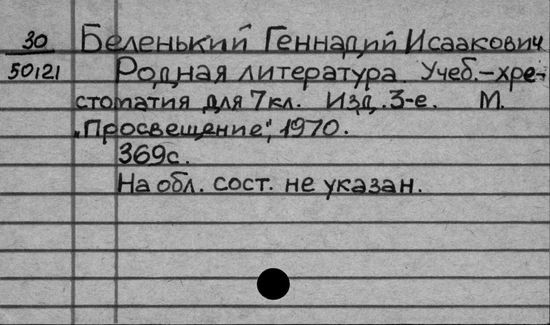 30 Беленький Геннадий Исаакович
50121 Родная литература. Учеб.-хре-
стоматия для 7 кл. Изд. 3-е. М.
"Просвещение", 1970.
369с.
На обл. сост. не указан.